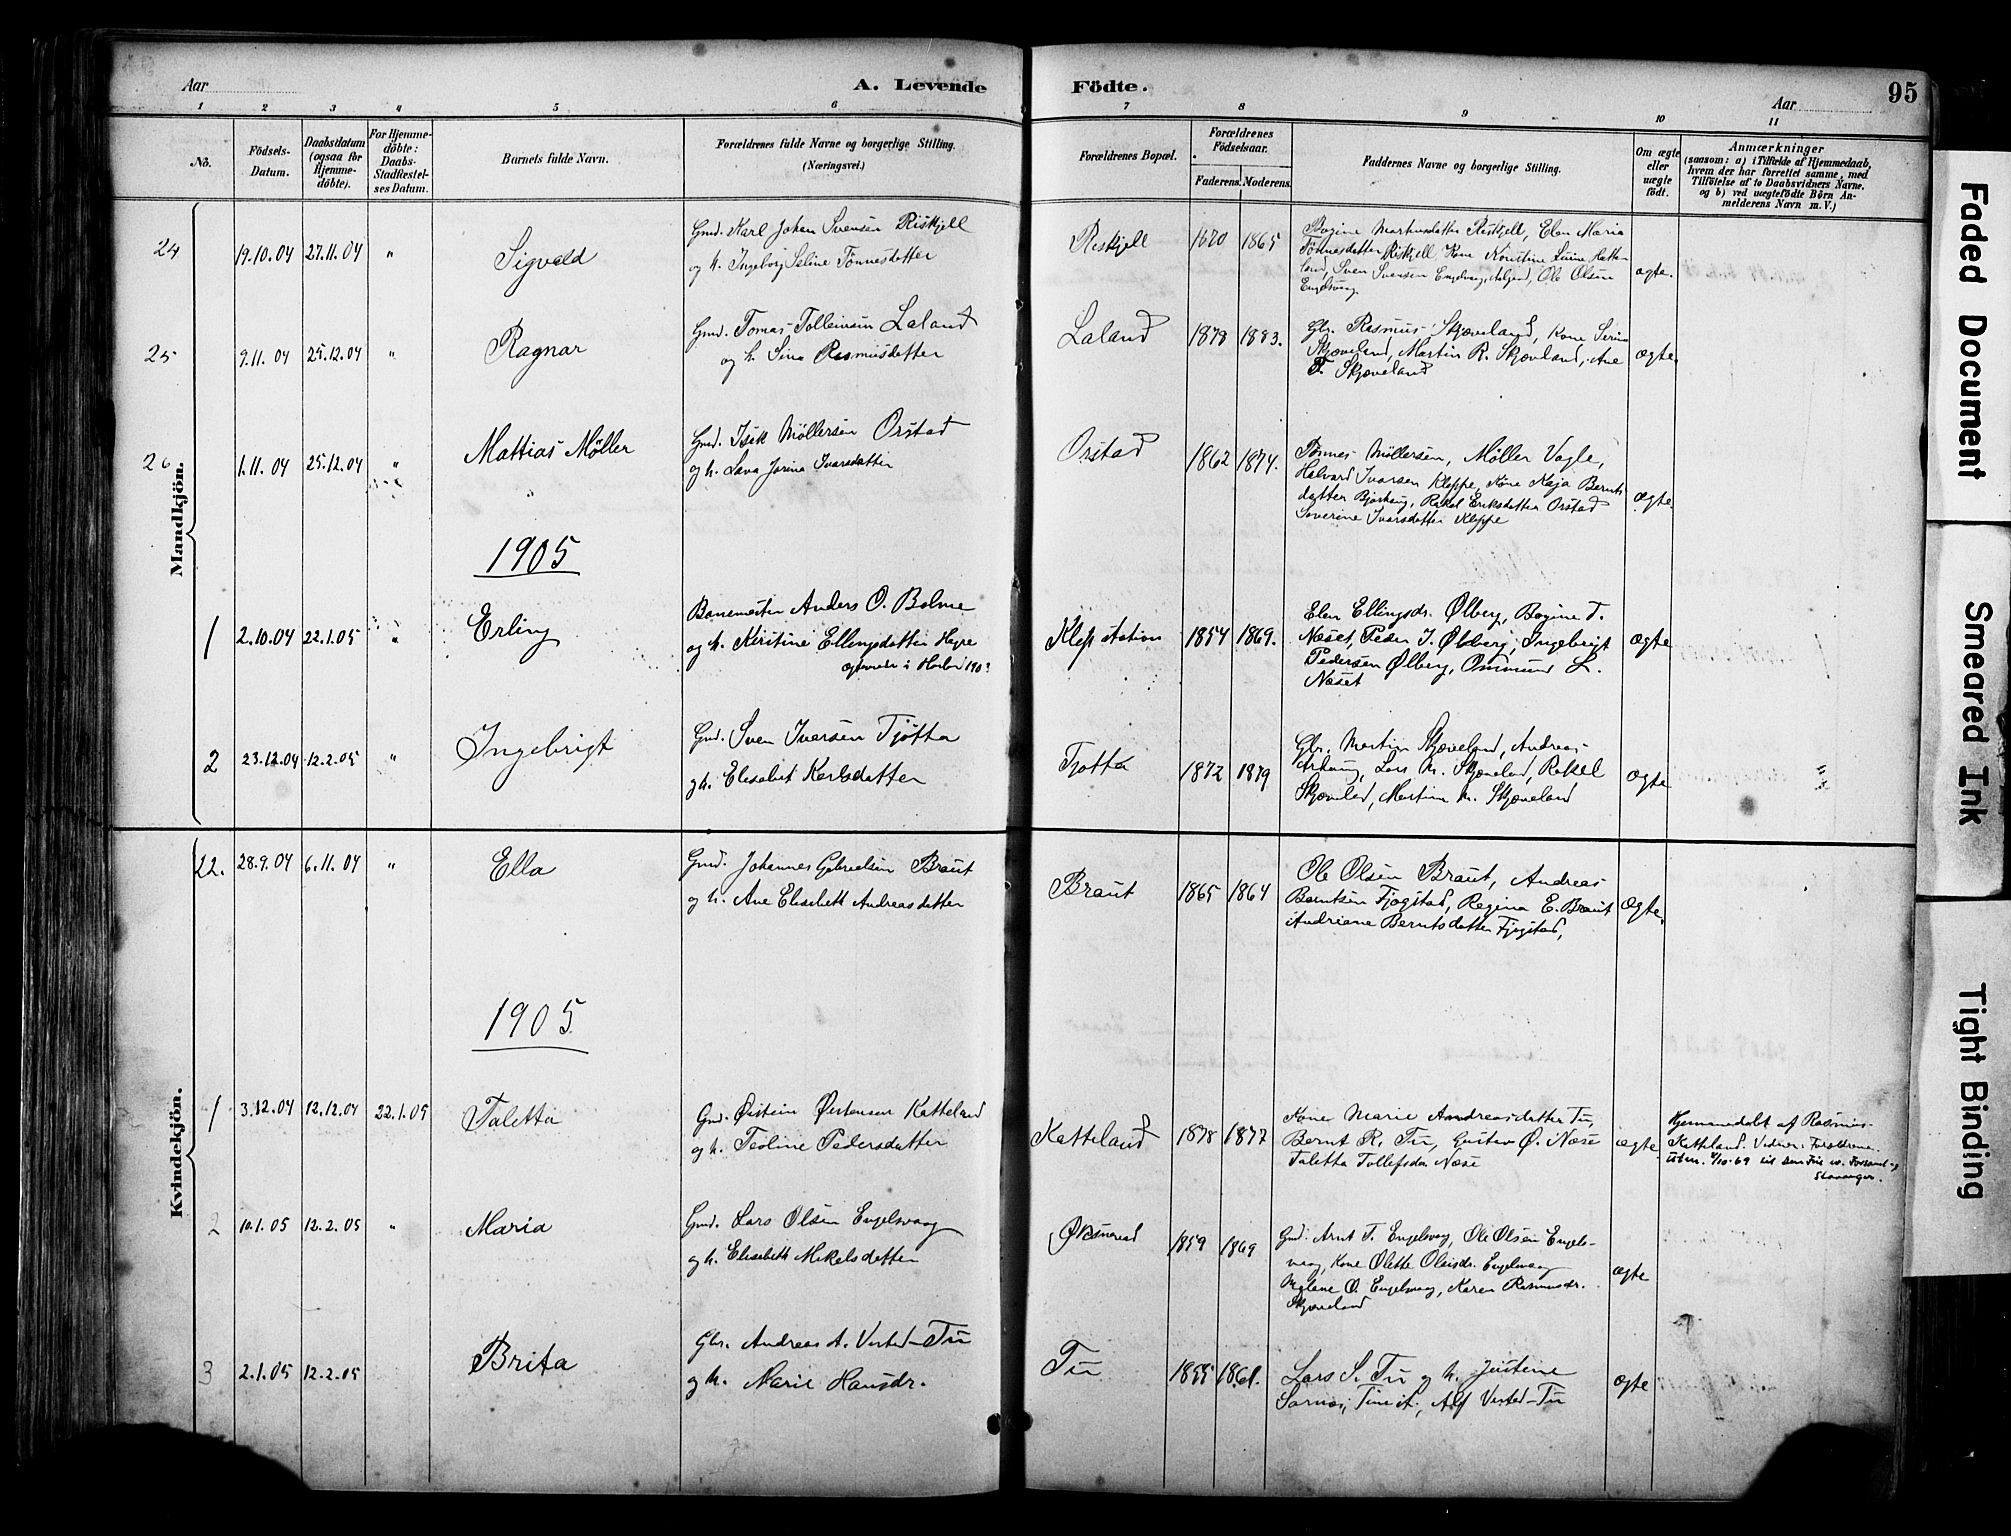 Aar
A. Levende
Födte.
Aar
95
1 2 3 4 5 6 7 8 9 10 11
No.
Födsels-
Datum.
Daabsdatum
(ogsaa för
Hjemme-
döbte).
For Hjemme-
döbte:
Daabs-
Stadfæstel-
ses Datum.
Barnets fulde Navn.
Forældrenes fulde Navne og borgerlige Stilling.
(Næringsvei.)
Forældrenes Bopæl.
Forældrenes
Födselsaar.
Faderens. Moderens.
Faddernes Navne og borgerlige Stilling.
Om ægte
eller
uægte
födt.
Anmærkninger
(saasom: a) i Tilfælde af Hjemmedaab,
hvem der har forrettet samme, med
Tilföielse af to Daabsvidners Navne.
og b) ved uægtefödte Börn An-
melderens Navn m. V.)
Mandkjön.
24 19.10.04 27.11.04 " Sigvald
Gmd. Karl Johan Svensen Riskjell
og h. Ingeborg Seline Tönnesdatter
Reskjell 1870 1865
Bogine Martinsdatter Riskjell, Elen Maria
Tönnesdatter Riskjell, Kone Kristine
land, Sven Svensen Engelsvaag, Ole Olsen
Engelsvaag
ægte.
25 9.11.04 25.12.04 " Ragnar
Gmd. Tomas Tolleivsen Laland
og h. Sina Rasmusdatter
Laland 1878 1883.
Gbr. Rasmus Skjæveland, Kone Serina
Skjæveland, Martin R. Skjæveland, Ane
T. Skjæveland
ægte.
26 1.11.04 25.12.04 " Mattias Møller
Gmd. Isak Möllersen Orstad
og h. Lava Jorina Ivarsdatter
Orstad 1862 1874.
Tönnes Möllersen, Møller Vagle,
Halvard Ivarsen Kleppe, Kone Maja Bernts
datter Bjorhaug, Rakel Eriksdatter Orstad
Severine Ivarsdatter Kleppe
ægte
1905
1 2.10.04 22.1.05 " Erling
Banemester Anders O. Bolme
og h. Kirstine Ellingsdatter Høge
Klep station 1854 1869.
Elen Ellingsdr. Ølberg, Bogine T.
Næset, Peder I. Ølberg, Ingebrigt
Pedersen Ølberg, Ommund L.
Næset
ægte
2 23.12.04 12.2.05 " Ingebrigt
Gmd. Sven Ivarsen Tjøtta
og h. Elisabet Karlsdatter
Tjøtta 1872 1879
Gbr. Martin Skjæveland, Andreas
Lars M. Skjæveland, Rakel
Skjæveland, Martine M. Skjæveland
ægte
Kvindekjön.
22. 28.9.04 6.11.04 " Ella
Gmd. Johannes Gabrielsen Braut
og h. Ane Elisabeth Andreasdatter
Braut 1865 1864
Ole Olsen Braut, Andreas
Berntsen Fjogstad, Regina E. Braut
Andriane Berntsdatter Fjogstad,
Ægte.
1905
1 3.12.04 12.12.04 22.1.05 Taletta
Gmd. Øistein Østensen Katteland
og h. Teoline Pedersdatter
Katteland 1878 1877
Kone Marie Andreasdatter Tu,
Bernt R. Tu, Gustav Ø. Næse
Taletta Tollefsdr. Næse
ægte
Hjemmedøbt af Rasmus
Katteland. Vidner: Forældrene.
Utm. 4/10-69 til Den Frie ev. Forsaml. og
Stavanger.
2 10.1.05 12.2.05 " Maria
Gmd. Lars Olsen Engelsvaag
og h. Elisabeth Mikelsdatter
Øksnevad 1859 1869
Gmd. Arnt T. Engelsvag, Ole Olsen Engels-
vaag, Kone Olette Olsdr. Engelsvaag
O. Engelsvaag, Karen Rasmusdr.
Skjæveland
ægte
3 2.1.05 12.2.05 Brita
Gbr. Andreas A. Vestad-Tu
og h. Marie Hansdr.
Tu 1855 1861.
Lars S. Tu og h. Justine
Tine A., Alf Vestad-Tu
ægte
Faded Document
Smeared Ink
Tight Binding